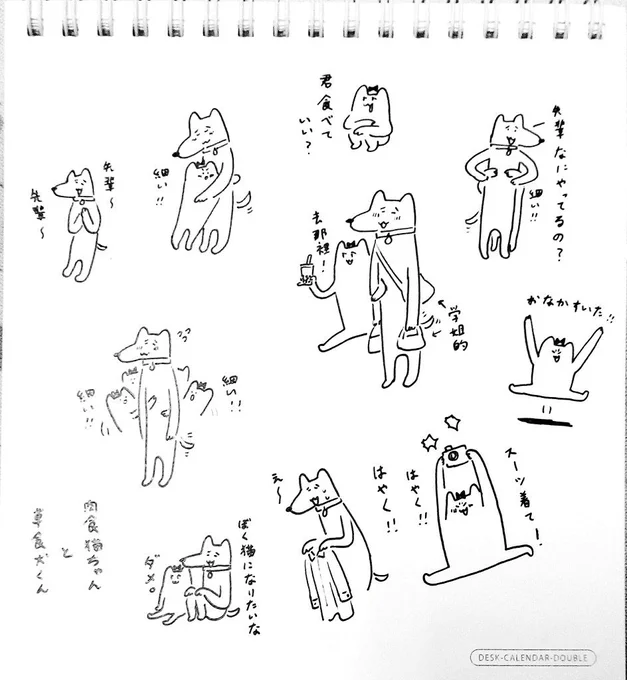 君食べて
いい?
先輩なにやってるの?
細い!!
先輩〜
先輩〜
細い!!
去那裡!
学姐的
おなかすいた!!
細い!!
細い!!
スーツ着て!
はやく!!
はやく!!
え〜
ぼく猫になりたいな
ダメ。
肉食猫ちゃん
と
草食犬くん
DESK-CALENDAR-DOUBLE